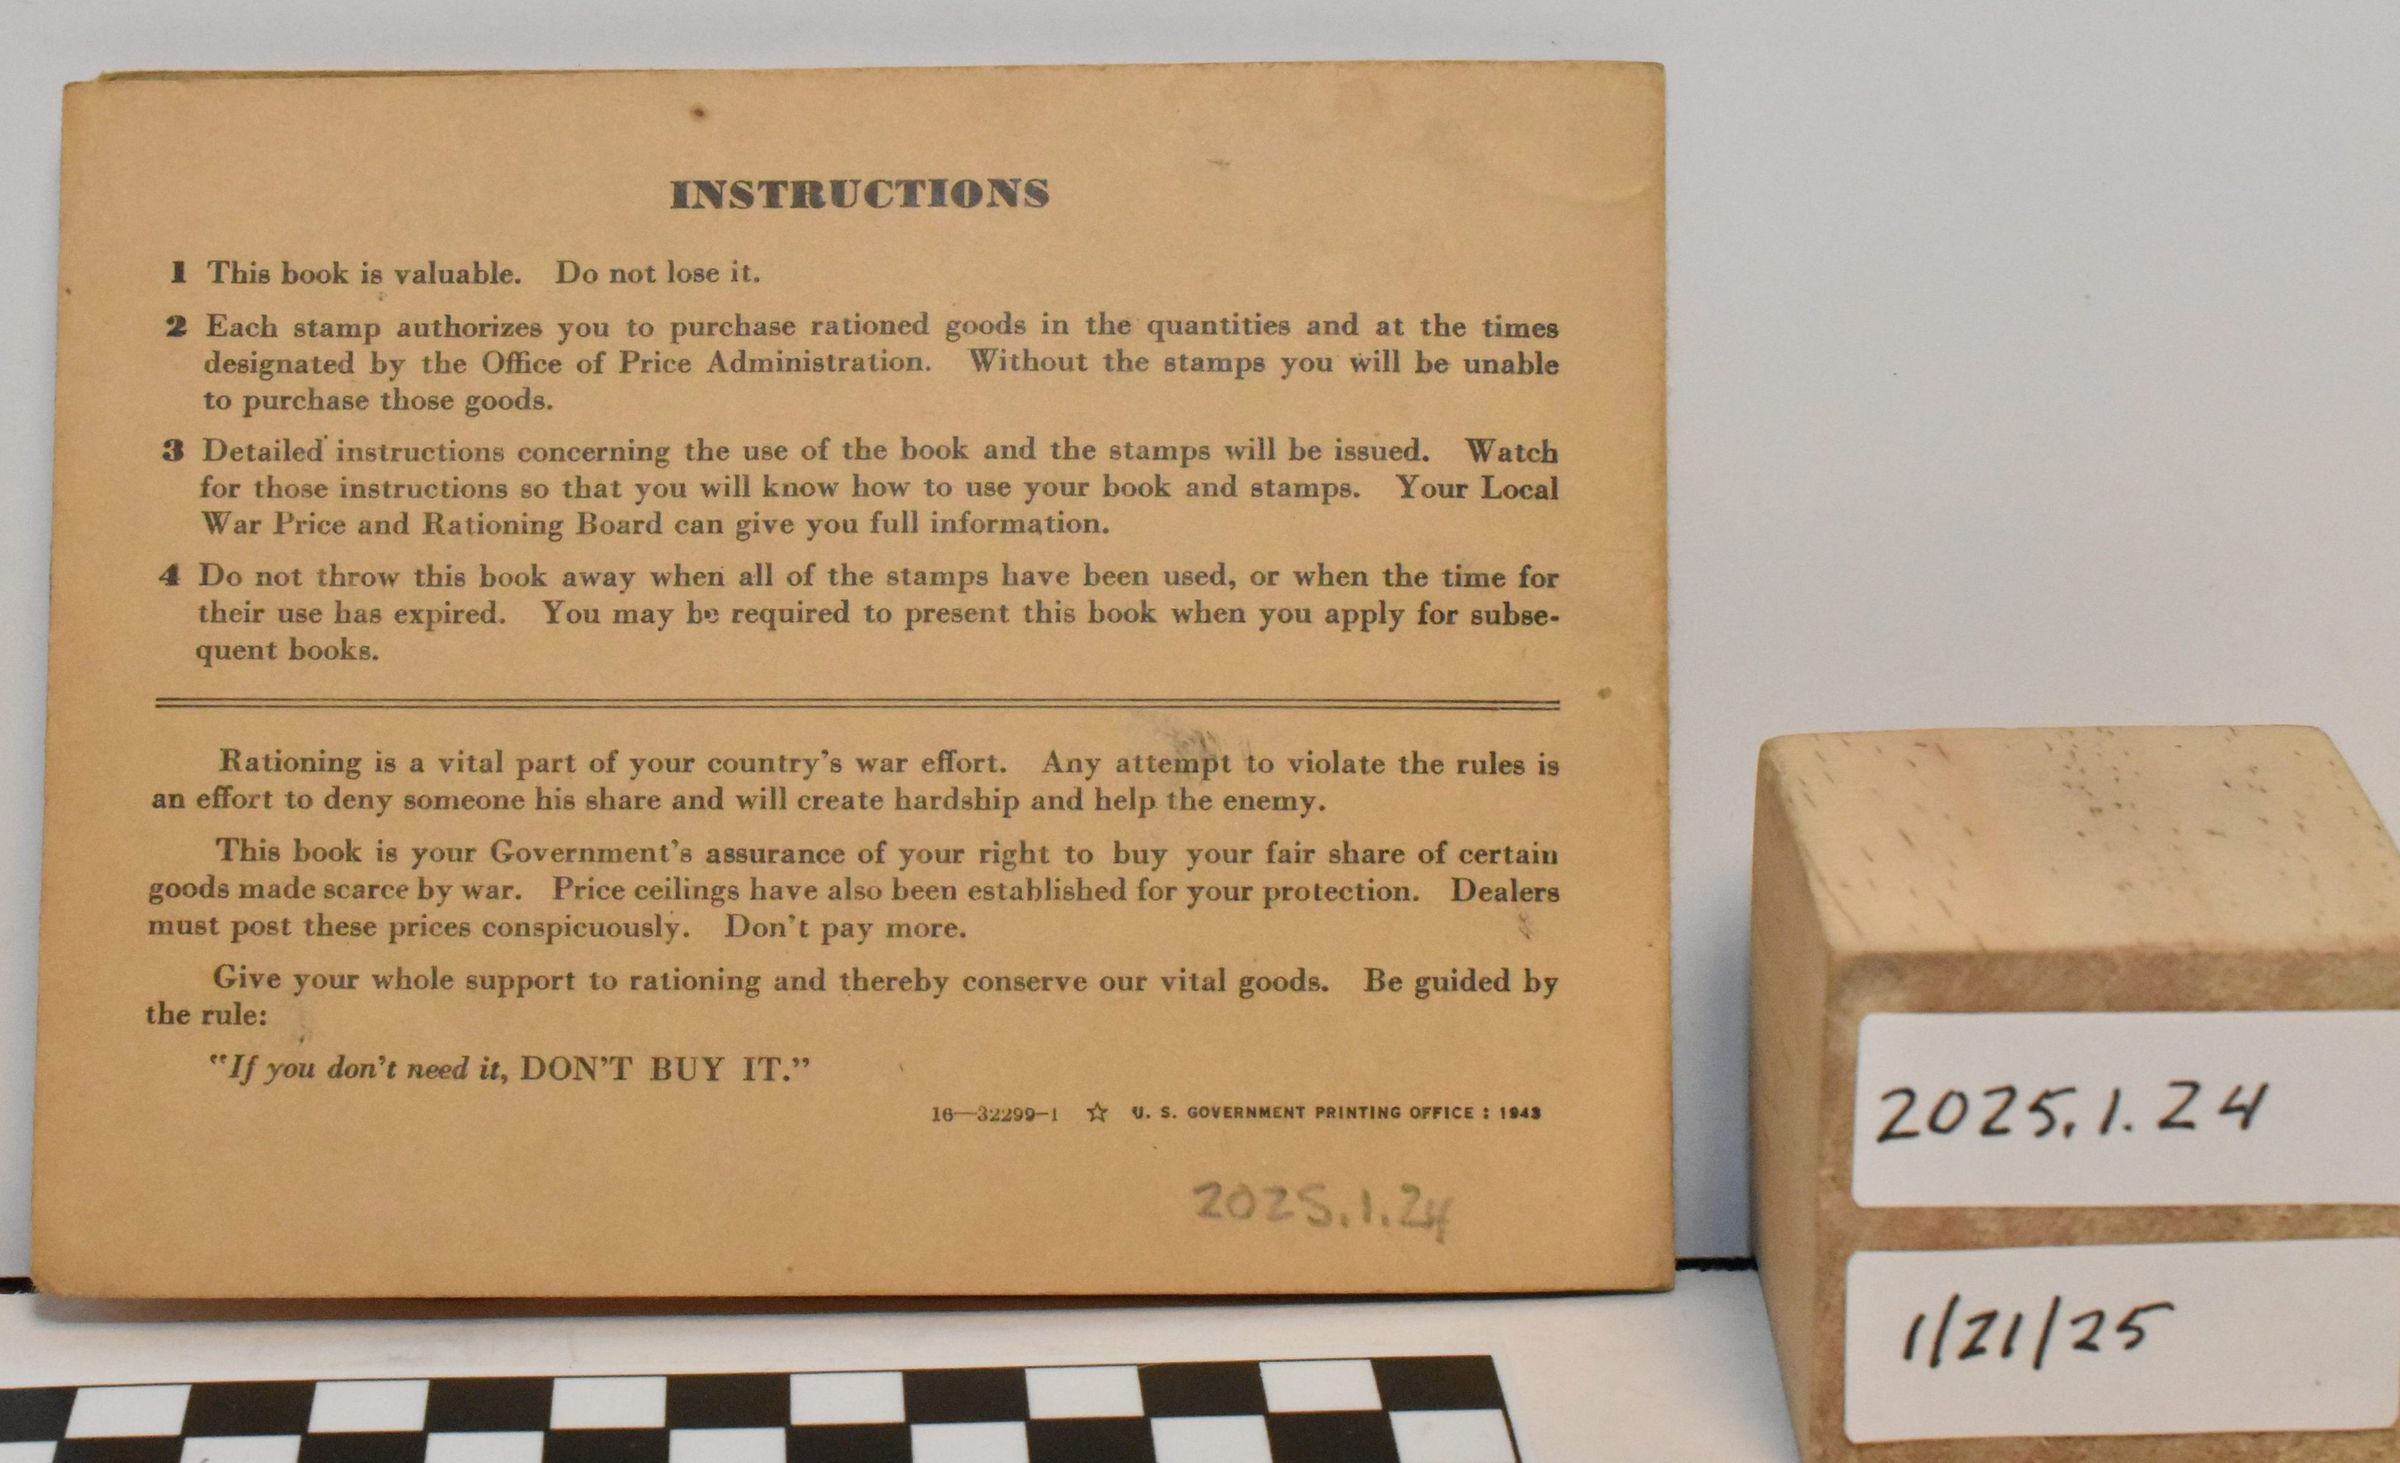 INSTRUCTIONS
1 This book is valuable. Do not lose it.
2 Each stamp authorizes you to purchase rationed goods in the quantities and at the times
designated by the Office of Price Administration. Without the stamps you will be unable
to purchase those goods.
3 Detailed instructions concerning the use of the book and the stamps will be issued. Watch
for those instructions so that you will know how to use your book and stamps. Your Local
War Price and Rationing Board can give you full information.
4 Do not throw this book away when all of the stamps have been used, or when the time for
their use has expired. You may be required to present this book when you apply for subse-
quent books.
Rationing is a vital part of your country's war effort. Any attempt to violate the rules is
an effort to deny someone his share and will create hardship and help the enemy.
This book is your Government's assurance of your right to buy your fair share of certain
goods made scarce by war. Price ceilings have also been established for your protection. Dealers
must post these prices conspicuously. Don't pay more.
Give your whole support to rationing and thereby conserve our vital goods. Be guided by
the rule:
"If you don't need it, DON'T BUY IT."
16—32299-1 ☆ U. S. GOVERNMENT PRINTING OFFICE : 1943
2025.1.24
2025.1.24
1/21/25